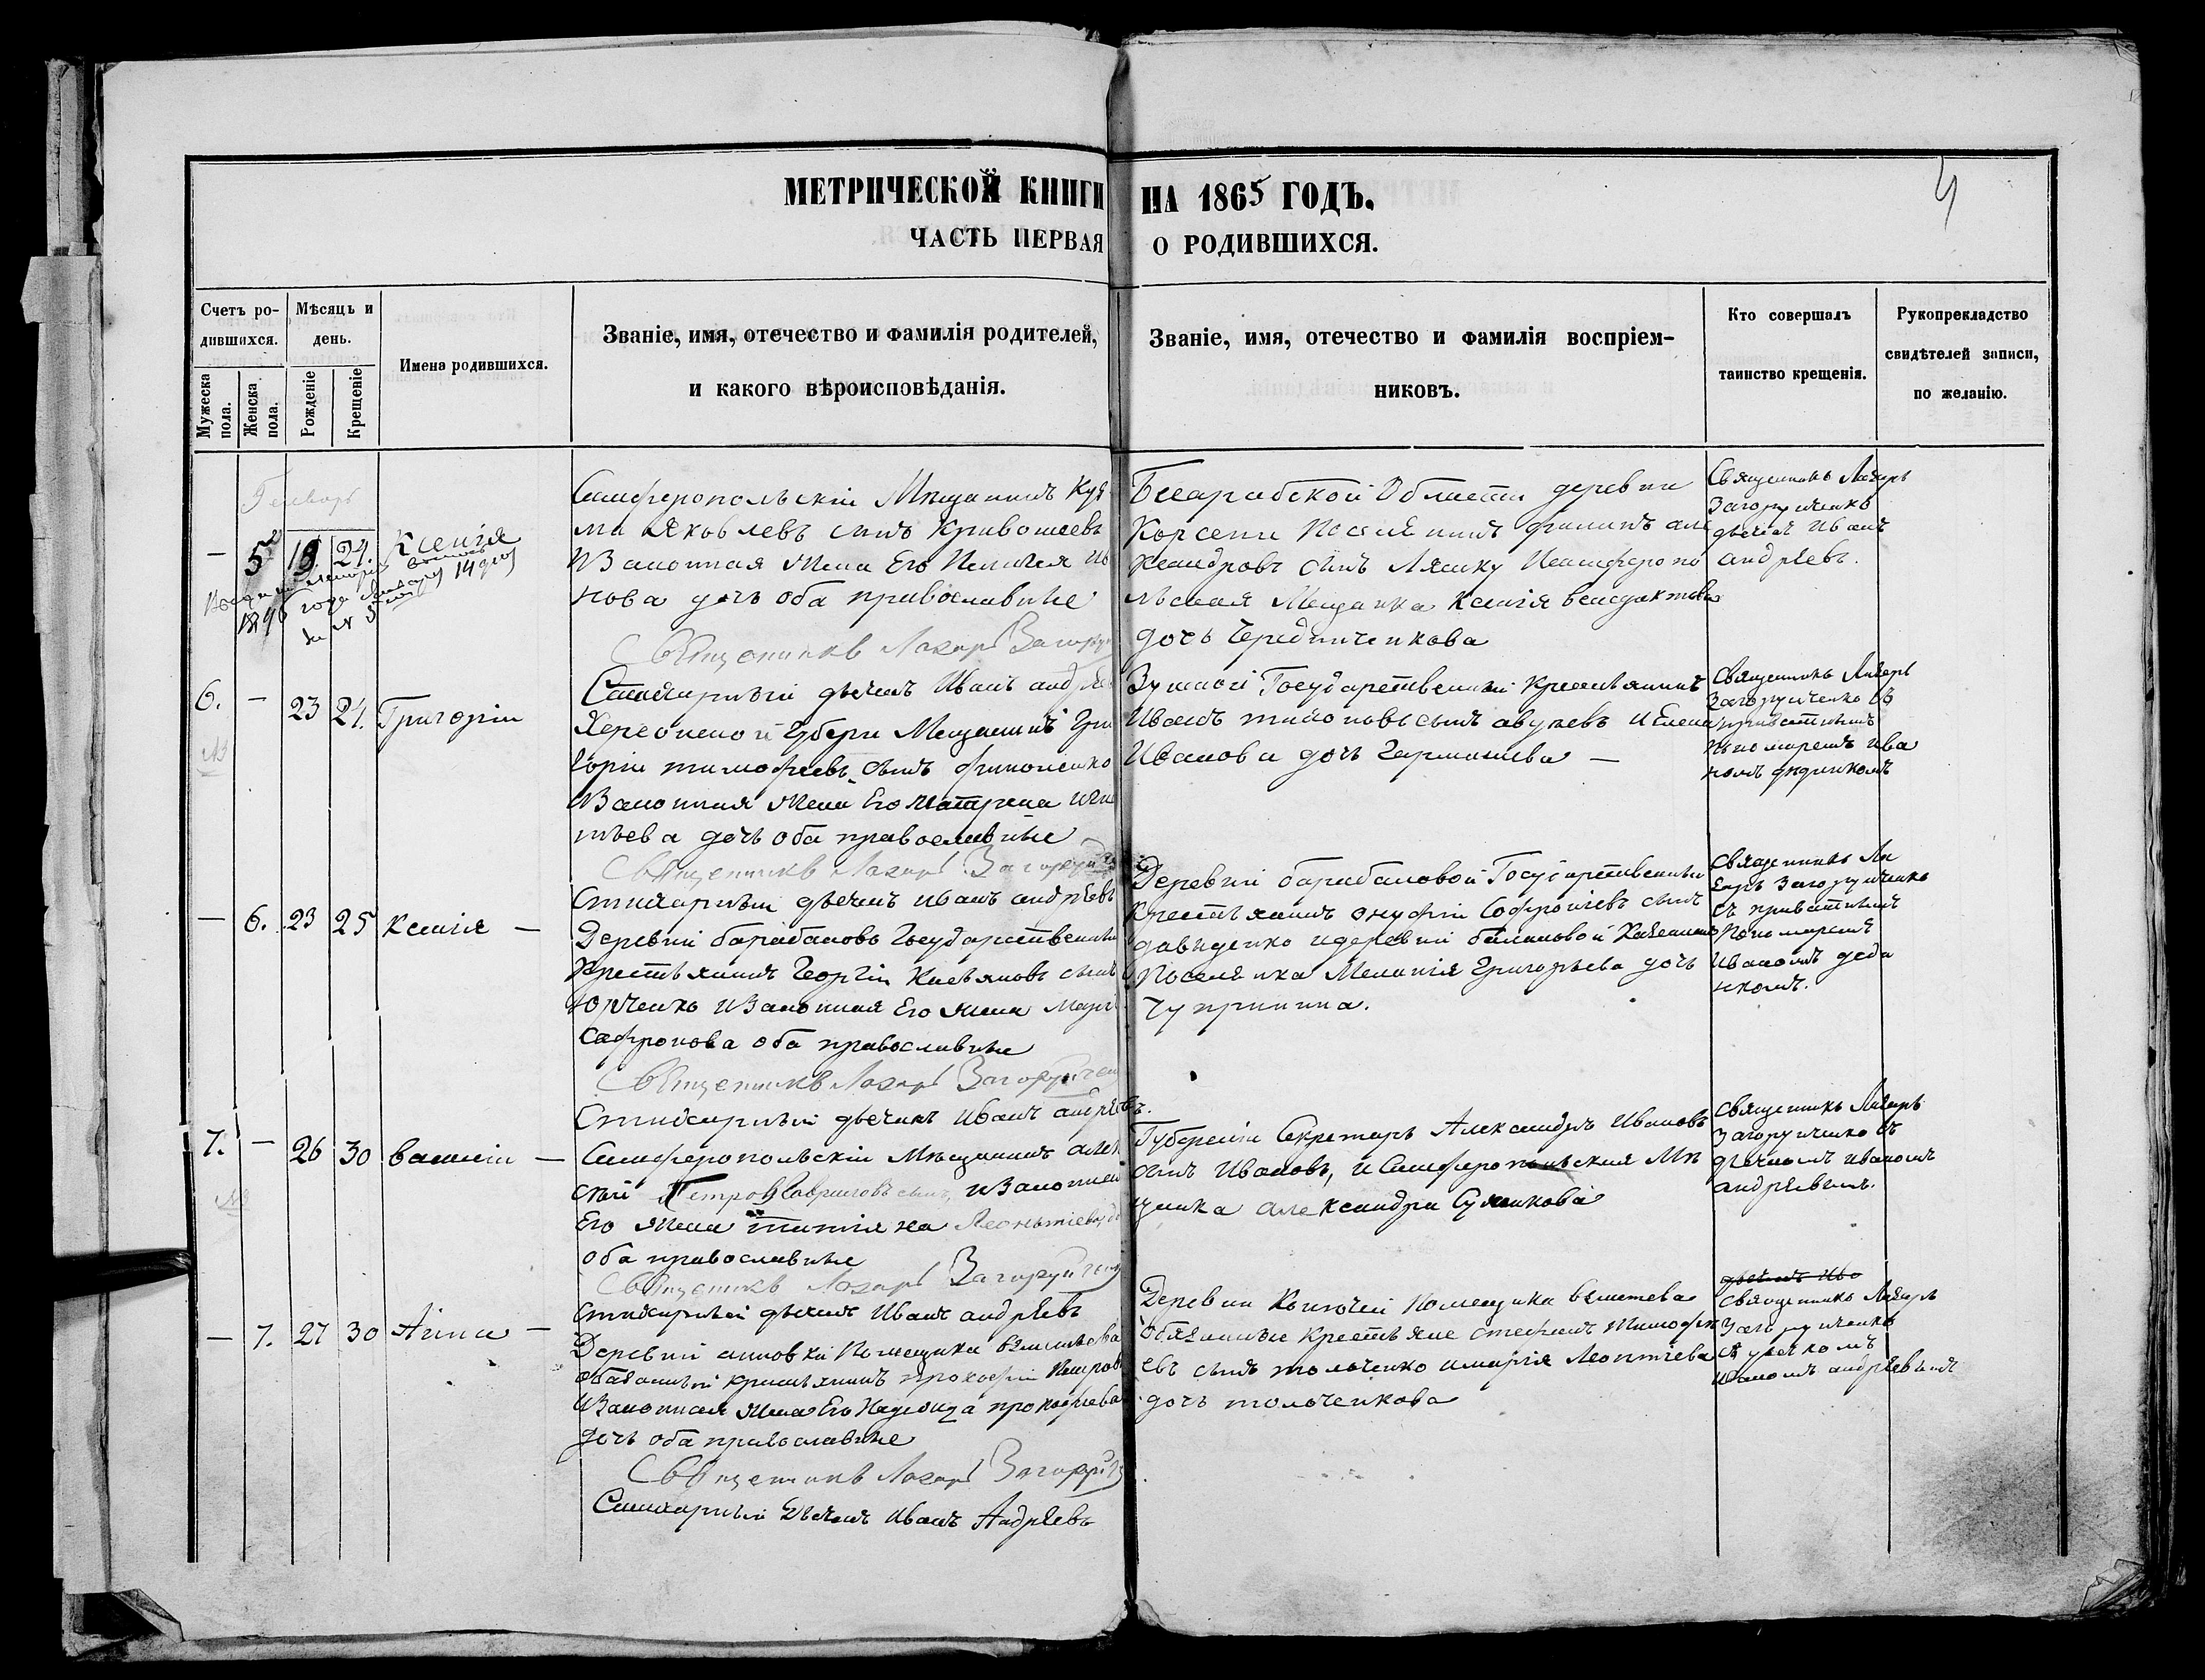 МЕТРИЧЕСКОЙ КНИГИ НА 1865 ГОДЪ.
4
ЧАСТЬ ПЕРВАЯ О РОДИВШИХСЯ.
Счетъ ро-
дившихся.
Мужеска
пола.
Женска
пола.
Мѣсяцъ и
день.
Рожденіе
Крещеніе
Имена родившихся.
Званіе, имя, отечество и фамилія родителей,
и какого вѣроисповѣданія.
Званіе, имя, отечество и фамилія воспріем-
никовъ.
Кто совершалъ
таинство крещенія.
Рукоприкладство
свидѣтелей записи,
по желанію.
Генварь
— 5. 19. 24. Ксенія
1896 года Января 14 дня
за №
Симферопольскій Мѣщанинъ Куз
ма Яковлевъ сынъ Кривошеевъ
изаконная жена Его
нова дочь оба православные
Священникъ Лазарь Загору
Стихарный дьячекъ Иванъ андрѣе
Бесарабской Области деревни
Корсени Поселянинъ филипъ але
ксандровъ сынъ Ляшку Исимферопо
льская Мещанка Ксенія
дочь Чередниченкова
Священникъ Лазарь
Загоруиченко
дьячек Иванъ
андрѣевъ.
6. — 23 24. Григорій
Херсонской Губерн Мещанинъ Гри
горій тимофеевъ сынъ
изаконная жена Его Матрена
тьева дочь оба православные
Священникъ Лазарь Загоруй
Стихарный дьячекъ иванъ андрѣевъ
Государственный крестьянинъ
Иванъ сынъ иЕлена
Иванова дочь
Священникъ Лазарь
Загоруиченко съ
приватнымъ
пономаремъ ива
номъ дидикомъ
— 6. 23 25 Ксенія —
Деревни барабановъ Государственный
крестьянинъ Георгій Касьяновъ сынъ
Юрченко изаконная Его жена Марі
Сафронова оба православные
Священникъ Лазарь Загоруйчен
Стихарный дьячекъ Иванъ андрѣевъ.
Деревни барабановой Государственный
крестьянинъ онуфрій Софроніевъ сынъ
давиденко идеревни балановой Казенная
поселянка Меланія Григорьева дочь
Чуприпина.
Священникъ Ла
зарь Загоруиченко
съ приватнымъ
Пономаремъ
Иваномъ дода
икомъ.
7. — 26 30 васили —
Симферопольскій Мѣщанинъ алек
сѣй Петровъ Гавриловъ сынъ, изаконная
Его жена татіяна Леонтіева до
оба православные
Священникъ Лазарь Загоруйчен
Стихарный дьячекъ Иванъ андрѣевъ
Губернскій Секретарь Александръ Ивановъ
сынъ Ивановъ, и Симферопольская Мѣ
щанка александра Суликова
Священникъ Лазарь
Загоруиченко съ
дьячкомъ иваномъ
андрѣевымъ.
— 7. 27 30 Анна —
Деревни ановки Помещика
обязанный крестьянинъ прокофій Петровъ
изаконная жена Его Надежда прокофиева
дочь оба православные
Священникъ Лазарь Загоруйч
Стихарный Дьячекъ Иванъ Андрѣевъ
Деревни Помещика
обязанные крестьяне стефанъ тимофѣ
евъ сынъ толоченко имарія Леонтіева
дочь толоченкова
дьячекъ Ива
Священникъ Лазарь
Загоруиченко
съ дьячкомъ
иваномъ андрѣевымъ